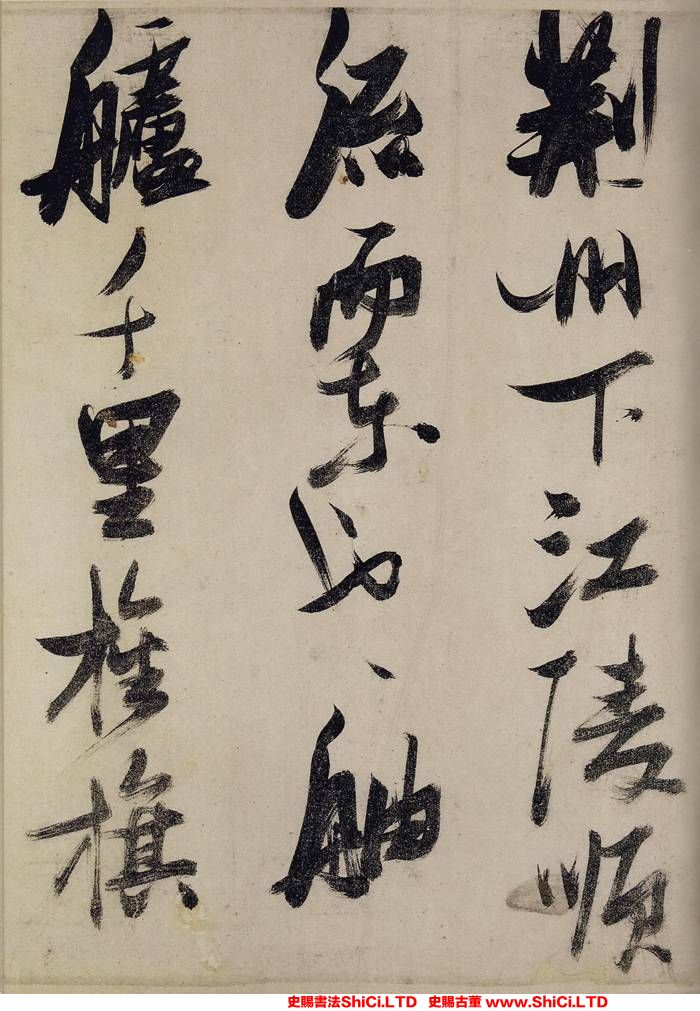 荊州下江陵順
流而東也舳
艫千里旌旗
史賜書法ShiCi.LTD 史賜古董 www.ShiCi.LTD